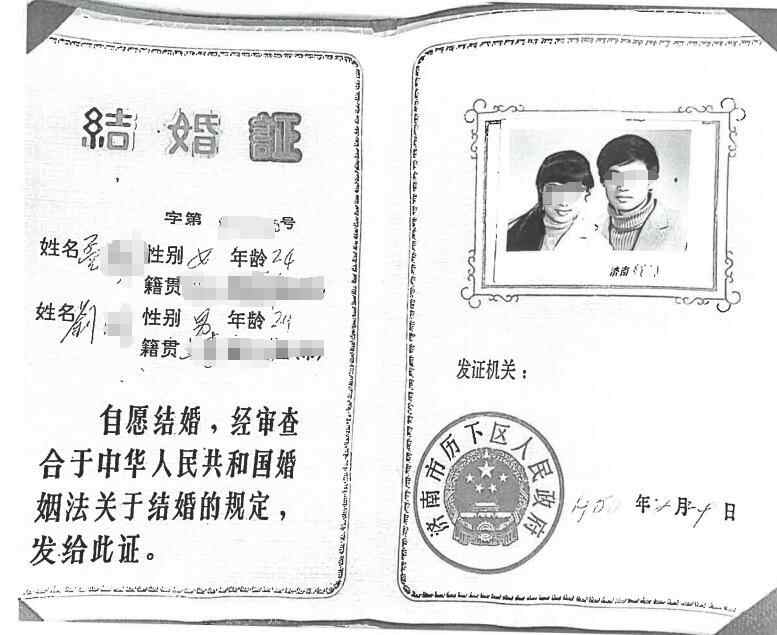 結婚証
字第 号
姓名 性别 女 年龄 24
籍贯
姓名 刘 性别 男 年龄 24
籍贯
自愿结婚，经审查
合于中华人民共和国婚
姻法关于结婚的规定，
发给此证。
济南
发证机关：
济南市历下区人民政府
年 月 日